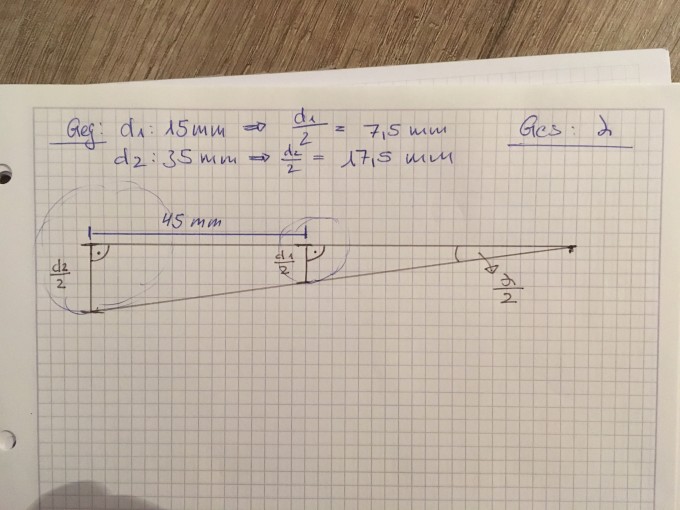 Geg: d1: 15mm ⇒ d1/2 = 7,5 mm Ges: α
d2: 35mm ⇒ d2/2 = 17,5 mm
45 mm
d2/2
d1/2
α/2